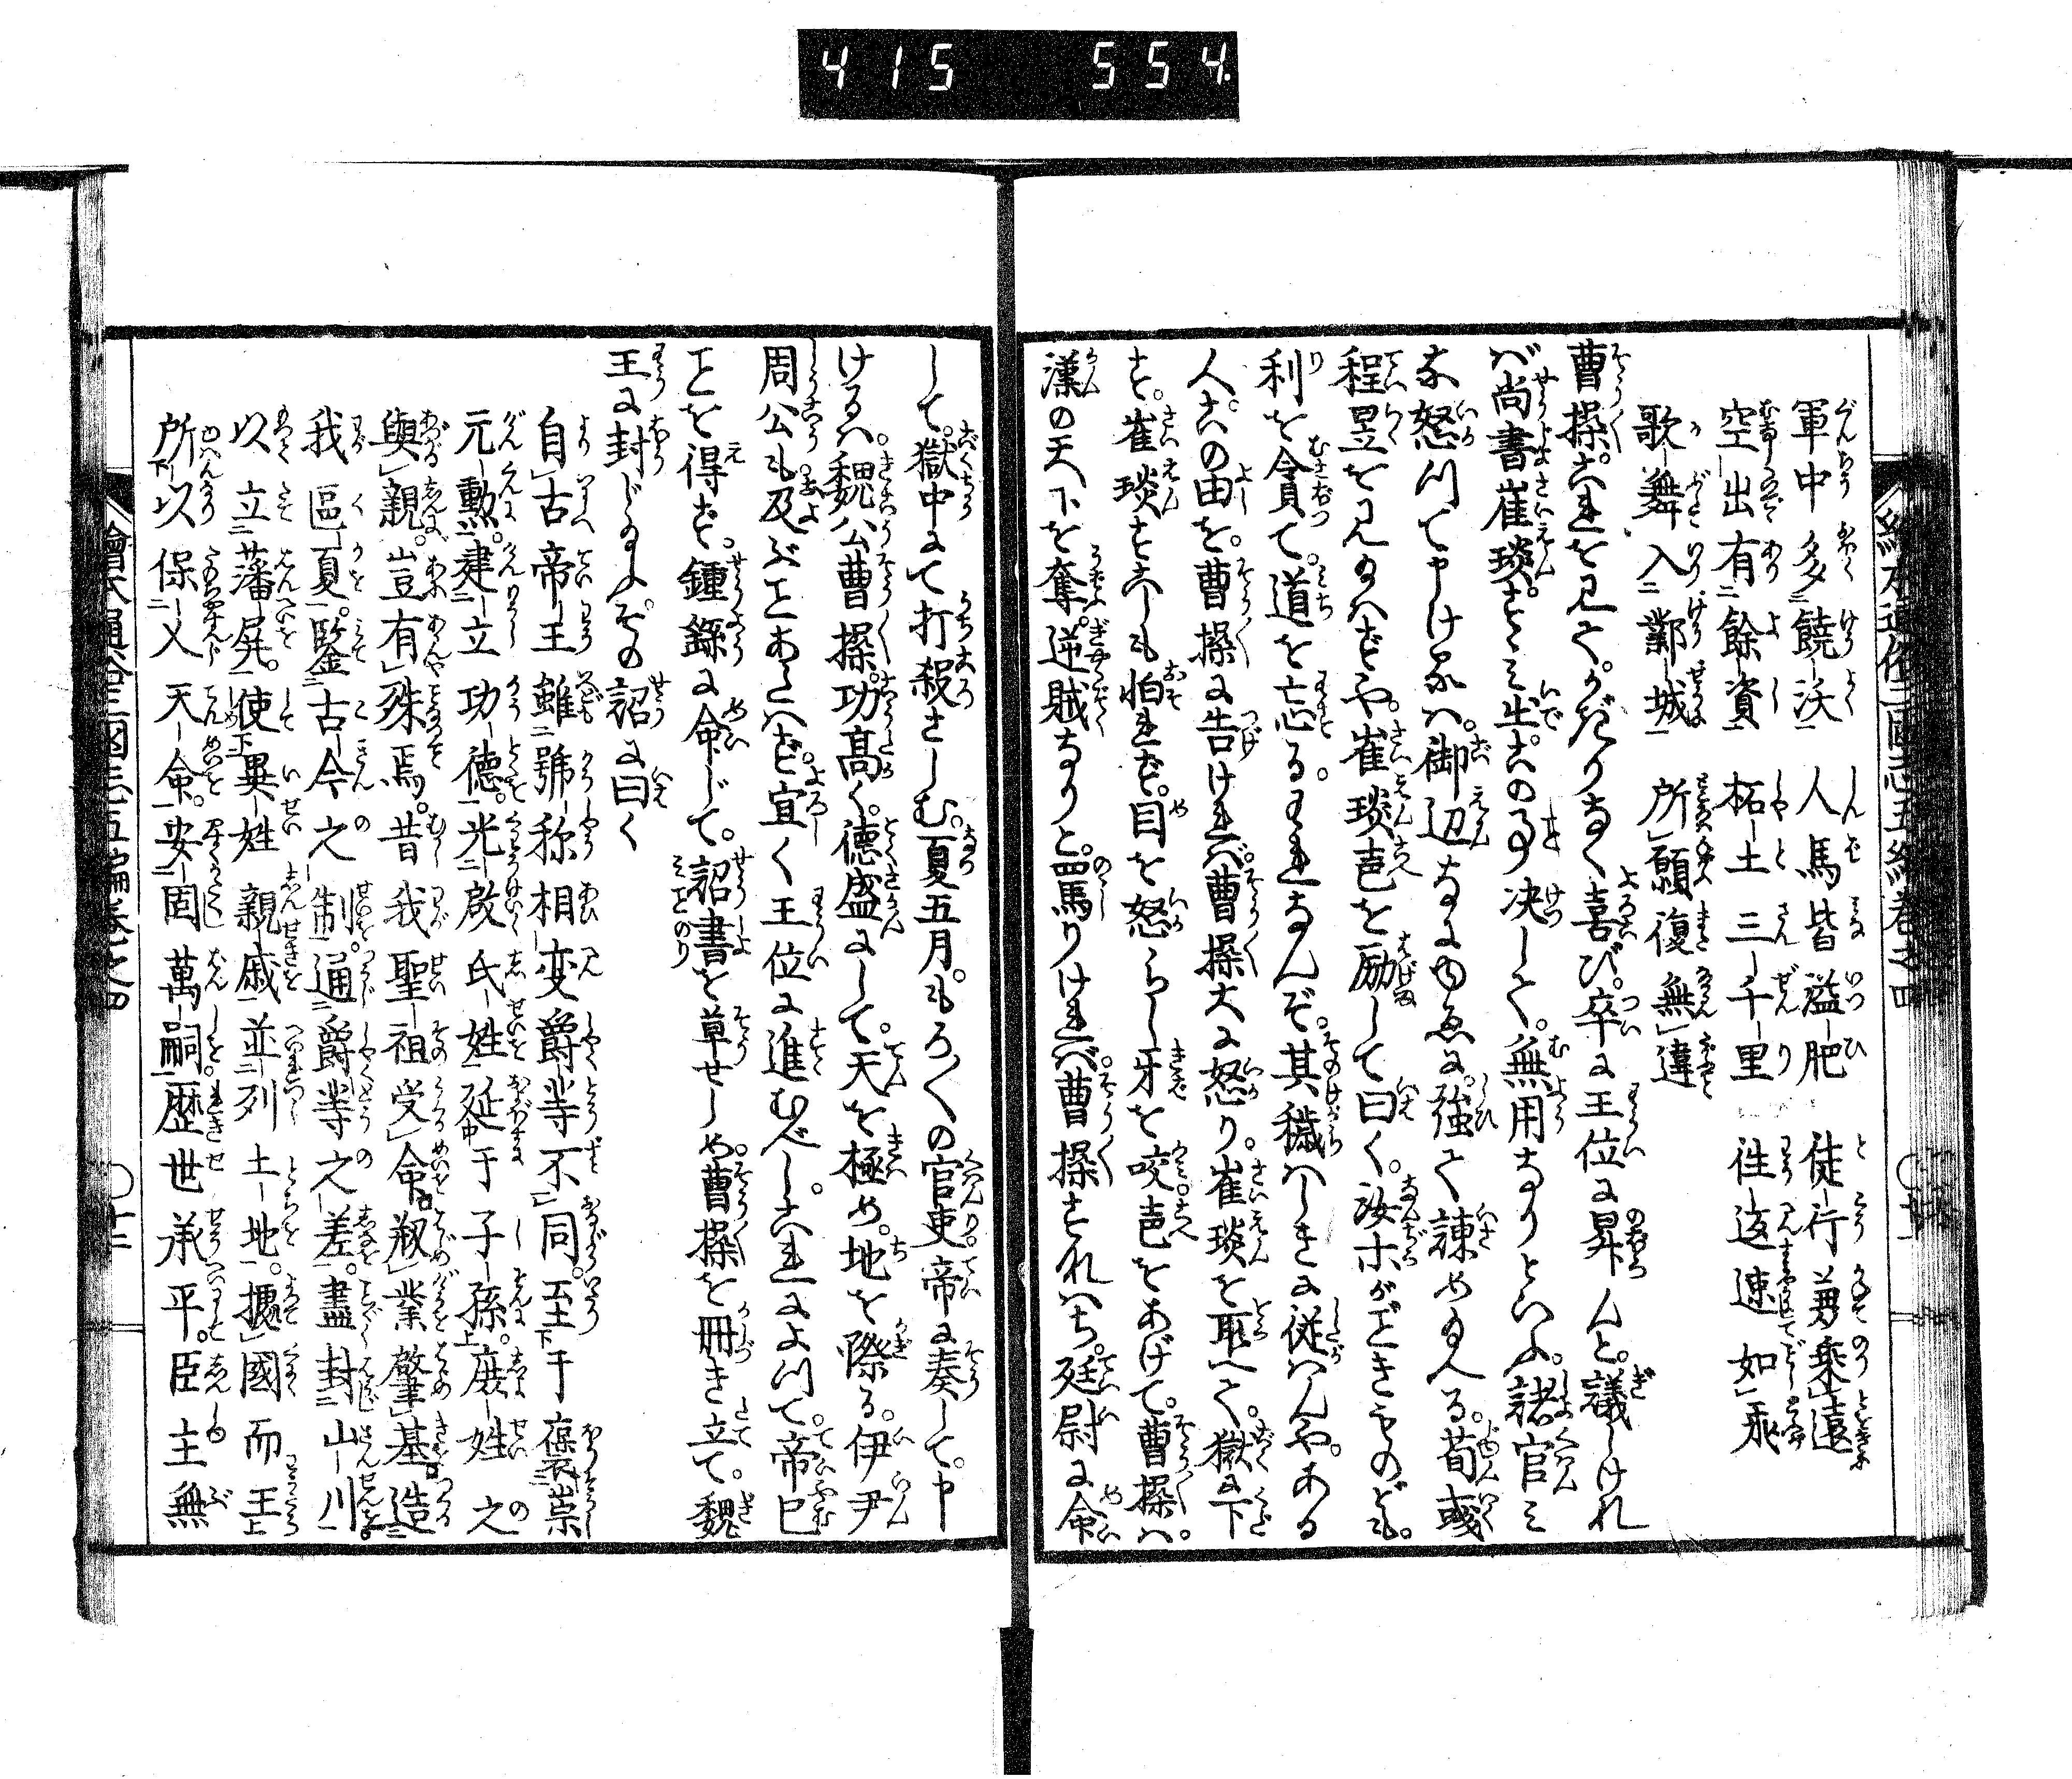 415 554.
軍中多饒沃 人馬皆溢肥 徒行兼乗遠
空出有餘資 柘土三千里 徃返速如飛
歌舞入鄴城 所願復無違
曹操これを見てかぎりなく喜び。卒に王位に昇んと。議しけれ
ば尚書崔琰。すゝみ出この事决して。無用なりといふ。諸官ミ
な怒つて申けるハ。御辺なにゆゑに強て諌め給へる。荀彧
程昱を見給ハずや。崔琰声を励して曰く。汝ホがごときものども。
利を貪て。道を忘る。これなんぞ。其穢ハしきに従ハんや。ある
人この由を。曹操に告けれバ。曹操大に怒り。崔琰を取へて。獄に下
す。崔琰すこしも怕れず。目を怒らし牙を咬声をあげて。曹操ハ。
漢の天下を奪。逆賊なりと。罵りけれバ。曹操すなハち。廷尉に命
して。獄中にて打殺さしむ。夏五月。もろ〳〵の官吏帝に奏して。申
けるハ。魏公曹操。功髙く。德盛にして。天を極め。地を際る。伊尹
周公も及ぶことあたハず。宜く王位に進むべし。これによつて。帝已
ことを得ず。鍾繇に命じて。詔書を草せしめ。曹操を冊き立て。魏
王に封じ給ふ。その詔に曰く
自古帝王雖號称相変爵䓁不同。至于襃崇
元勲。建立功德。光啟氏姓延于子孫。庶姓之
與親。豈有殊焉。昔我聖祖受命。剏業肇基。造
我區夏。鑒古今之制。通爵䓁之差。盡封山川
以立藩屏。使異姓親戚。並列土地。據國而王
所以保乂天命。安固萬嗣。歴世承平。臣主無
繪本通俗三國志五編卷之四
十二